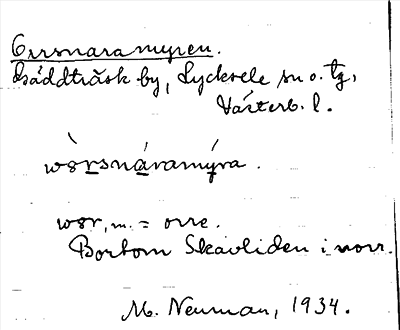 Orrsnaramyren.
Bäddträsk by, Lycksele sn o. tg,
Västerb. l.
wòrsnáramýra.
wor, m. = orre.
Bortom Skavliden i norr.
M. Neuman, 1934.